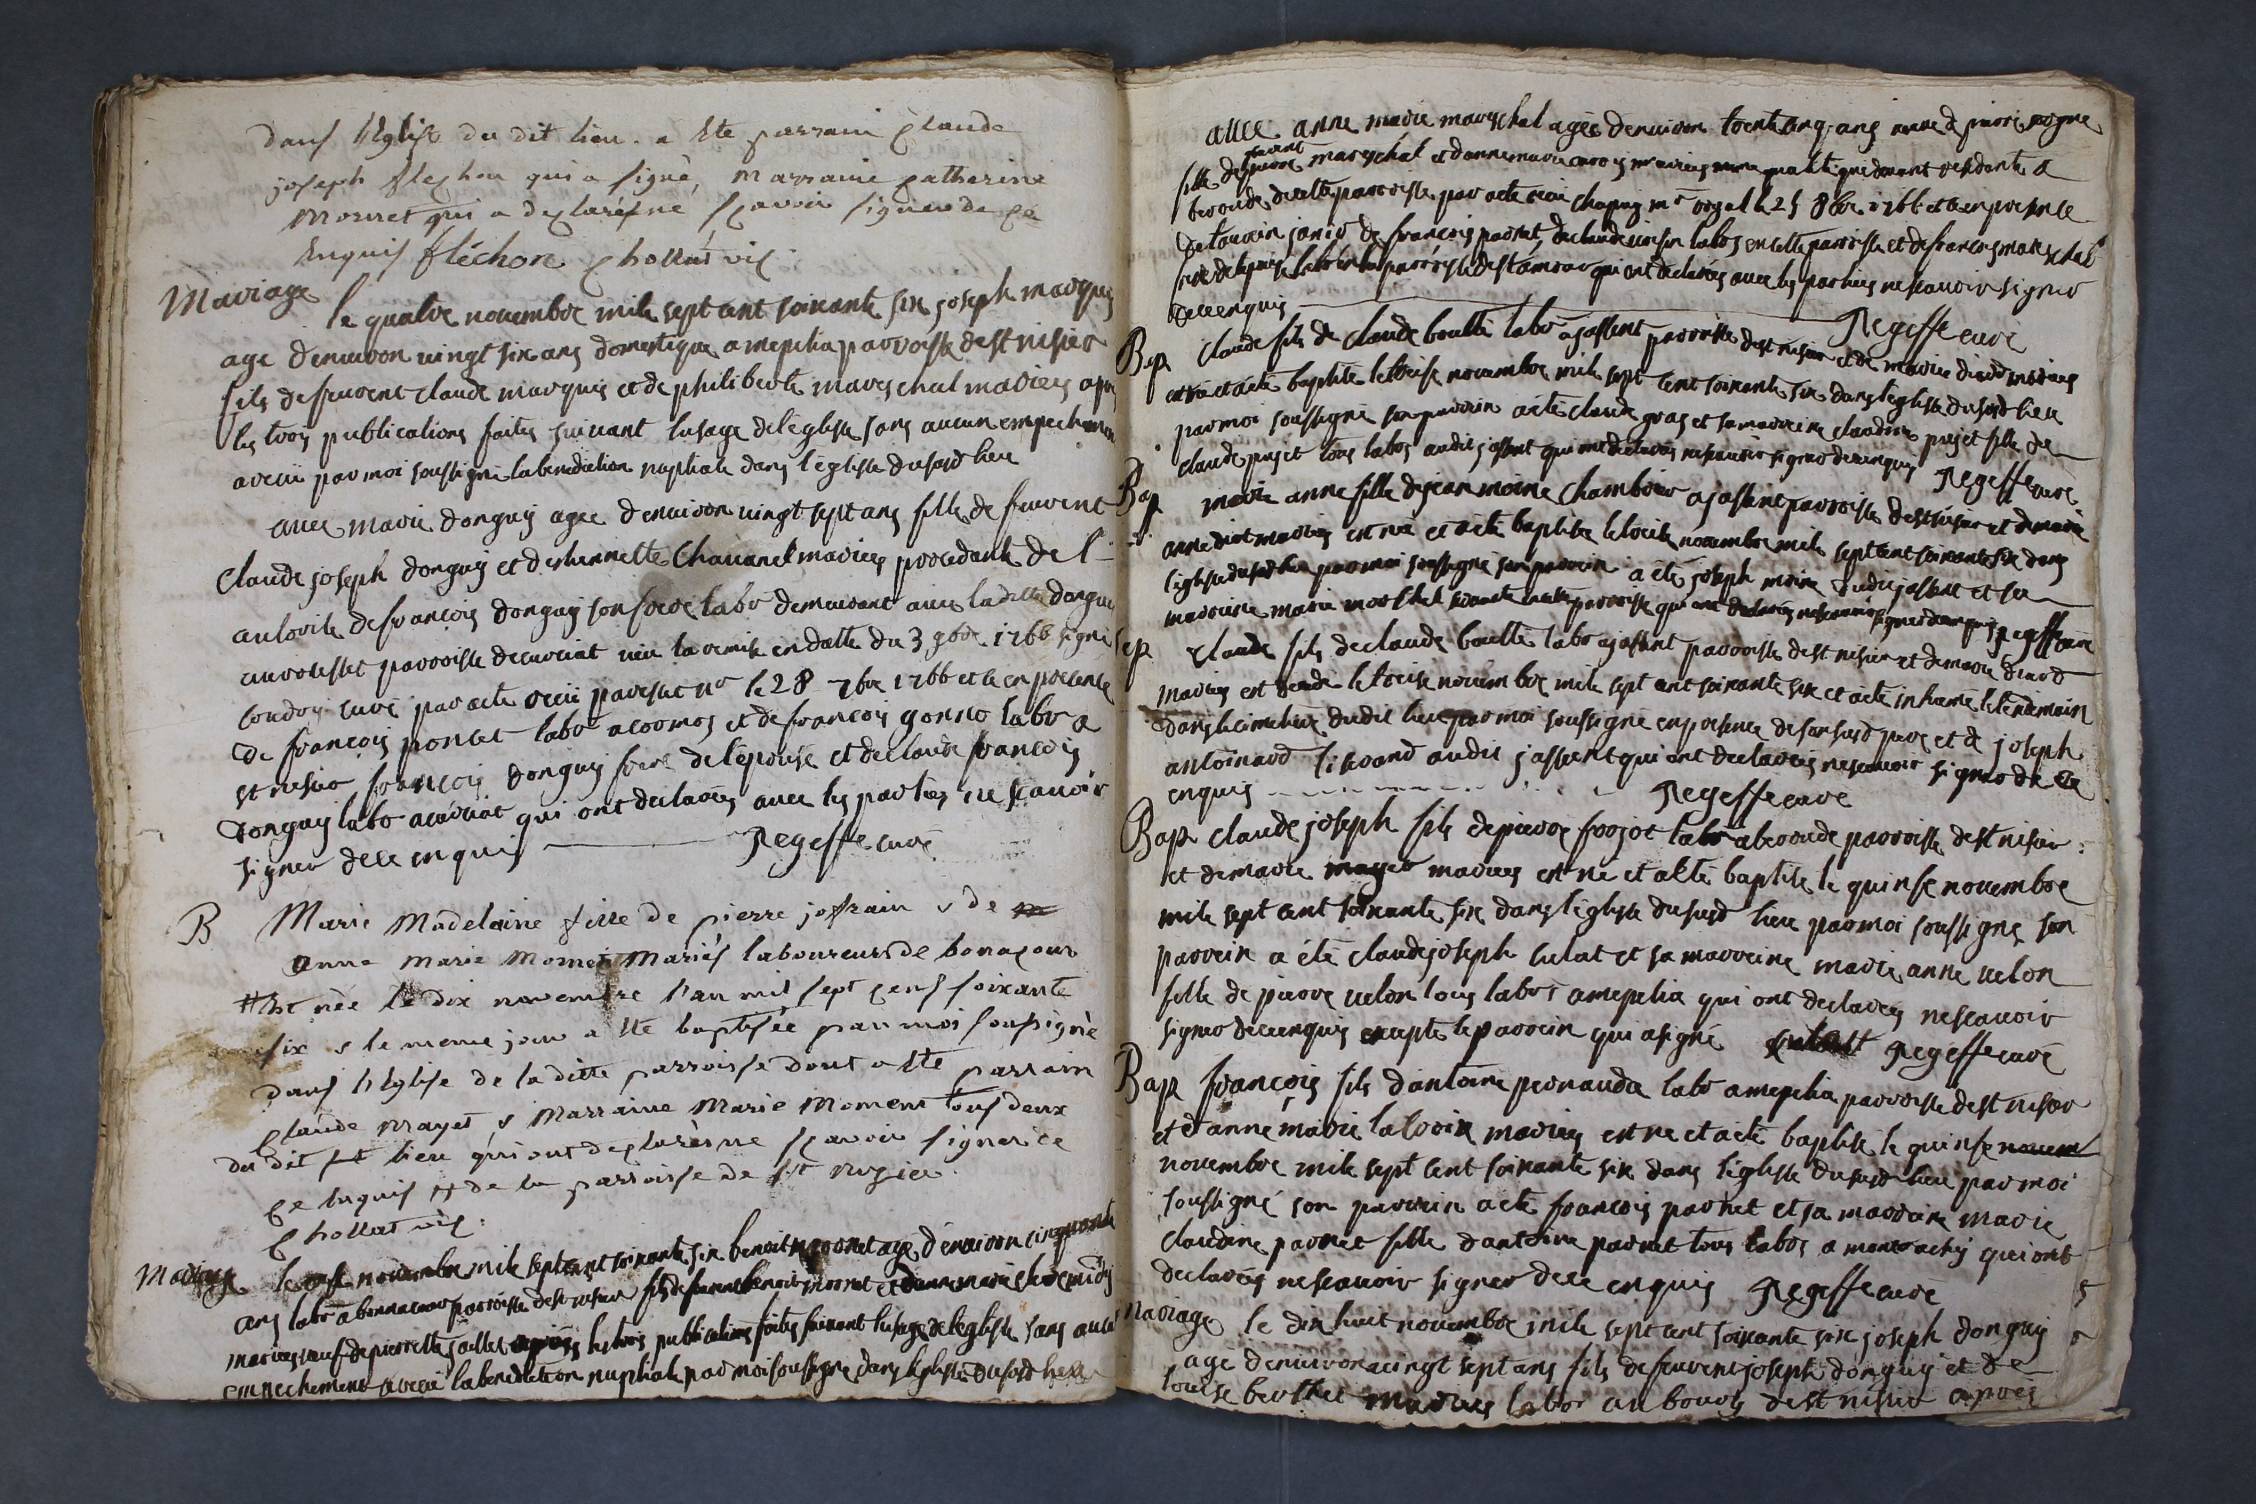 dans l'Eglise du dit lieu. a Ete parrain Claude
joseph flechon qui a signé, Marraine Catherine
Mornet qui a declaréé ne scavoir signer de ce
Enquis fléchon Chollat vic.
Mariage le quatre novembre mile sept cent soixante six joseph marquis
agé denuiron vingt six ans domestique a mepilia parroisse de st nisier
fils de feuvent claude marquis et de philiberte mareschal mariees apres
les trois publications faites suivant lusage de léglise sans aucun empechemen
a recu par moi soussigné la benediction nuptiale dans l'église du susd lieu
avec marie donguy agee denuiron vingt sept ans fille de feuvent
Claude joseph donguy et destiennette Chavanel mariees procedante de l'
autorité de francois donguy son frere labr demeurant avec la ditte donguy
parroisse de curciat veu la remise en datte du 3 9bre 1766 signé
curé par acte recu par nre le 28 7bre 1766 et ce en presence
de francois poncet labr a cormoz et de francois gonno labr a
st nisier, francois donguy frere de l'épouse et de claude francois
donguy labr a curciat qui ont declarés avec les parties ne scavoir
signer de ce enquis Regeffe curé
B Marie Madelaine fille de pierre josserain & de
anne marie Moment Mariés laboureurs de bonacour
# Est née le dix novembre l'an mil sept cens soixante
six & le meme jour a Ete baptisée par moi soussigné
dans l'Eglise de la ditte parroisse dont a Ete parrain
Claude Mayet & Marraine Marie Moment tous deux
du dit lieu qui ont declarés ne scavoir signer de
ce Enquis # de la parroisse de st nizier.
Chollat vic.
Mariage le onse novembre mile sept cent soixante six benoit agé d'enuiron cinquante
ans labr a bonnacour parroisse de st nisier fils de feuvent benoit et danne marie
mariees veuf de pierrette les trois publications faites suivant lusage de léglise sans aucun
empechement a recu la benediction nuptiale par moi soussigné dans léglise du susd lieu
avec anne marie mareschal agée denuiron trente cinq ans veuve de pierre
fille de feuvent pierre mareschal et danne marie residante a
beroude de cette parroisse par acte recu Chapuy nre royal le 25 8bre 1766 et ce en presence
de francois parnet, de claude labrs en cette parroisse et de francois mareschal
frere de lepouse labr en la parroisse de st amour qui ont declarés avec les parties ne scavoir signer
de ce enquis Regeffe curé
Bap Claude fils de claude boutte labr a jassent parroisse de st nisier et de marie diard mariees
est né et a eté baptisé le treise novembre mile sept cent soixante six dans léglise du susd lieu
par moi soussigné son parrein a eté claude gras et sa marreine claudine pujet fille de
claude pujet tous labrs audit jassent qui ont declarés ne scavoir signer de ce enquis Regeffe curé
Bap marie anne fille de jean moine Chambrier a jassent parroisse de st nisier et de marie
anne mariees est né et a eté baptisée le treise novembre mile sept cent soixante six dans
léglise du susd lieu par moi soussigné son parrein a été joseph moine dudit jassent et sa
marreine marie de cette parroisse qui ont declarés ne scavoir signer de ce enquis Regeffe curé
Sep Claude fils de claude boutte labr a jassent parroisse de st nisier et de marie diard
mariees est decede le treise novembre mile sept cent soixante six et a eté inhumé le lendemain
dans le cimetiere dudit lieu par moi soussigné en presence de son susd pere et de joseph
antoinard tisserand audit jassent qui ont declarés ne scavoir signer de ce
enquis Regeffe curé
Bap claude joseph fils de pierre frojot labr a beroude parroisse de st nisier
et de marie mayer mariees est né et a eté baptisé le quinse novembre
mile sept cent soixante six dans l'église du susd lieu par moi soussigné son
parrein a été claude joseph culat et sa marreine marie anne velon
fille de pierre velon tous labrs a mepilia qui ont declarés ne scavoir
signer de ce enquis excepte le parrein qui a signé Regeffe curé
Bap francois fils d'antoine pernauda labr a mepilia parroisse de st nisier
et d'anne marie mariees est né et a eté baptisé le quinse novem
novembre mile sept cent soixante six dans l'église du susd lieu par moi
soussigné son parrein a eté francois parnet et sa marreine marie
claudine parnet fille d'antoine parnet tous labrs a montrachy qui ont
declarés ne scavoir signer de ce enquis Regeffe curé
Mariage le dix huit novembre mile sept cent soixante six joseph donguy
agé denuiron vingt sept ans fils de feuvent joseph donguy et de
louise berthet mariees labor au bourg de st nisier apres